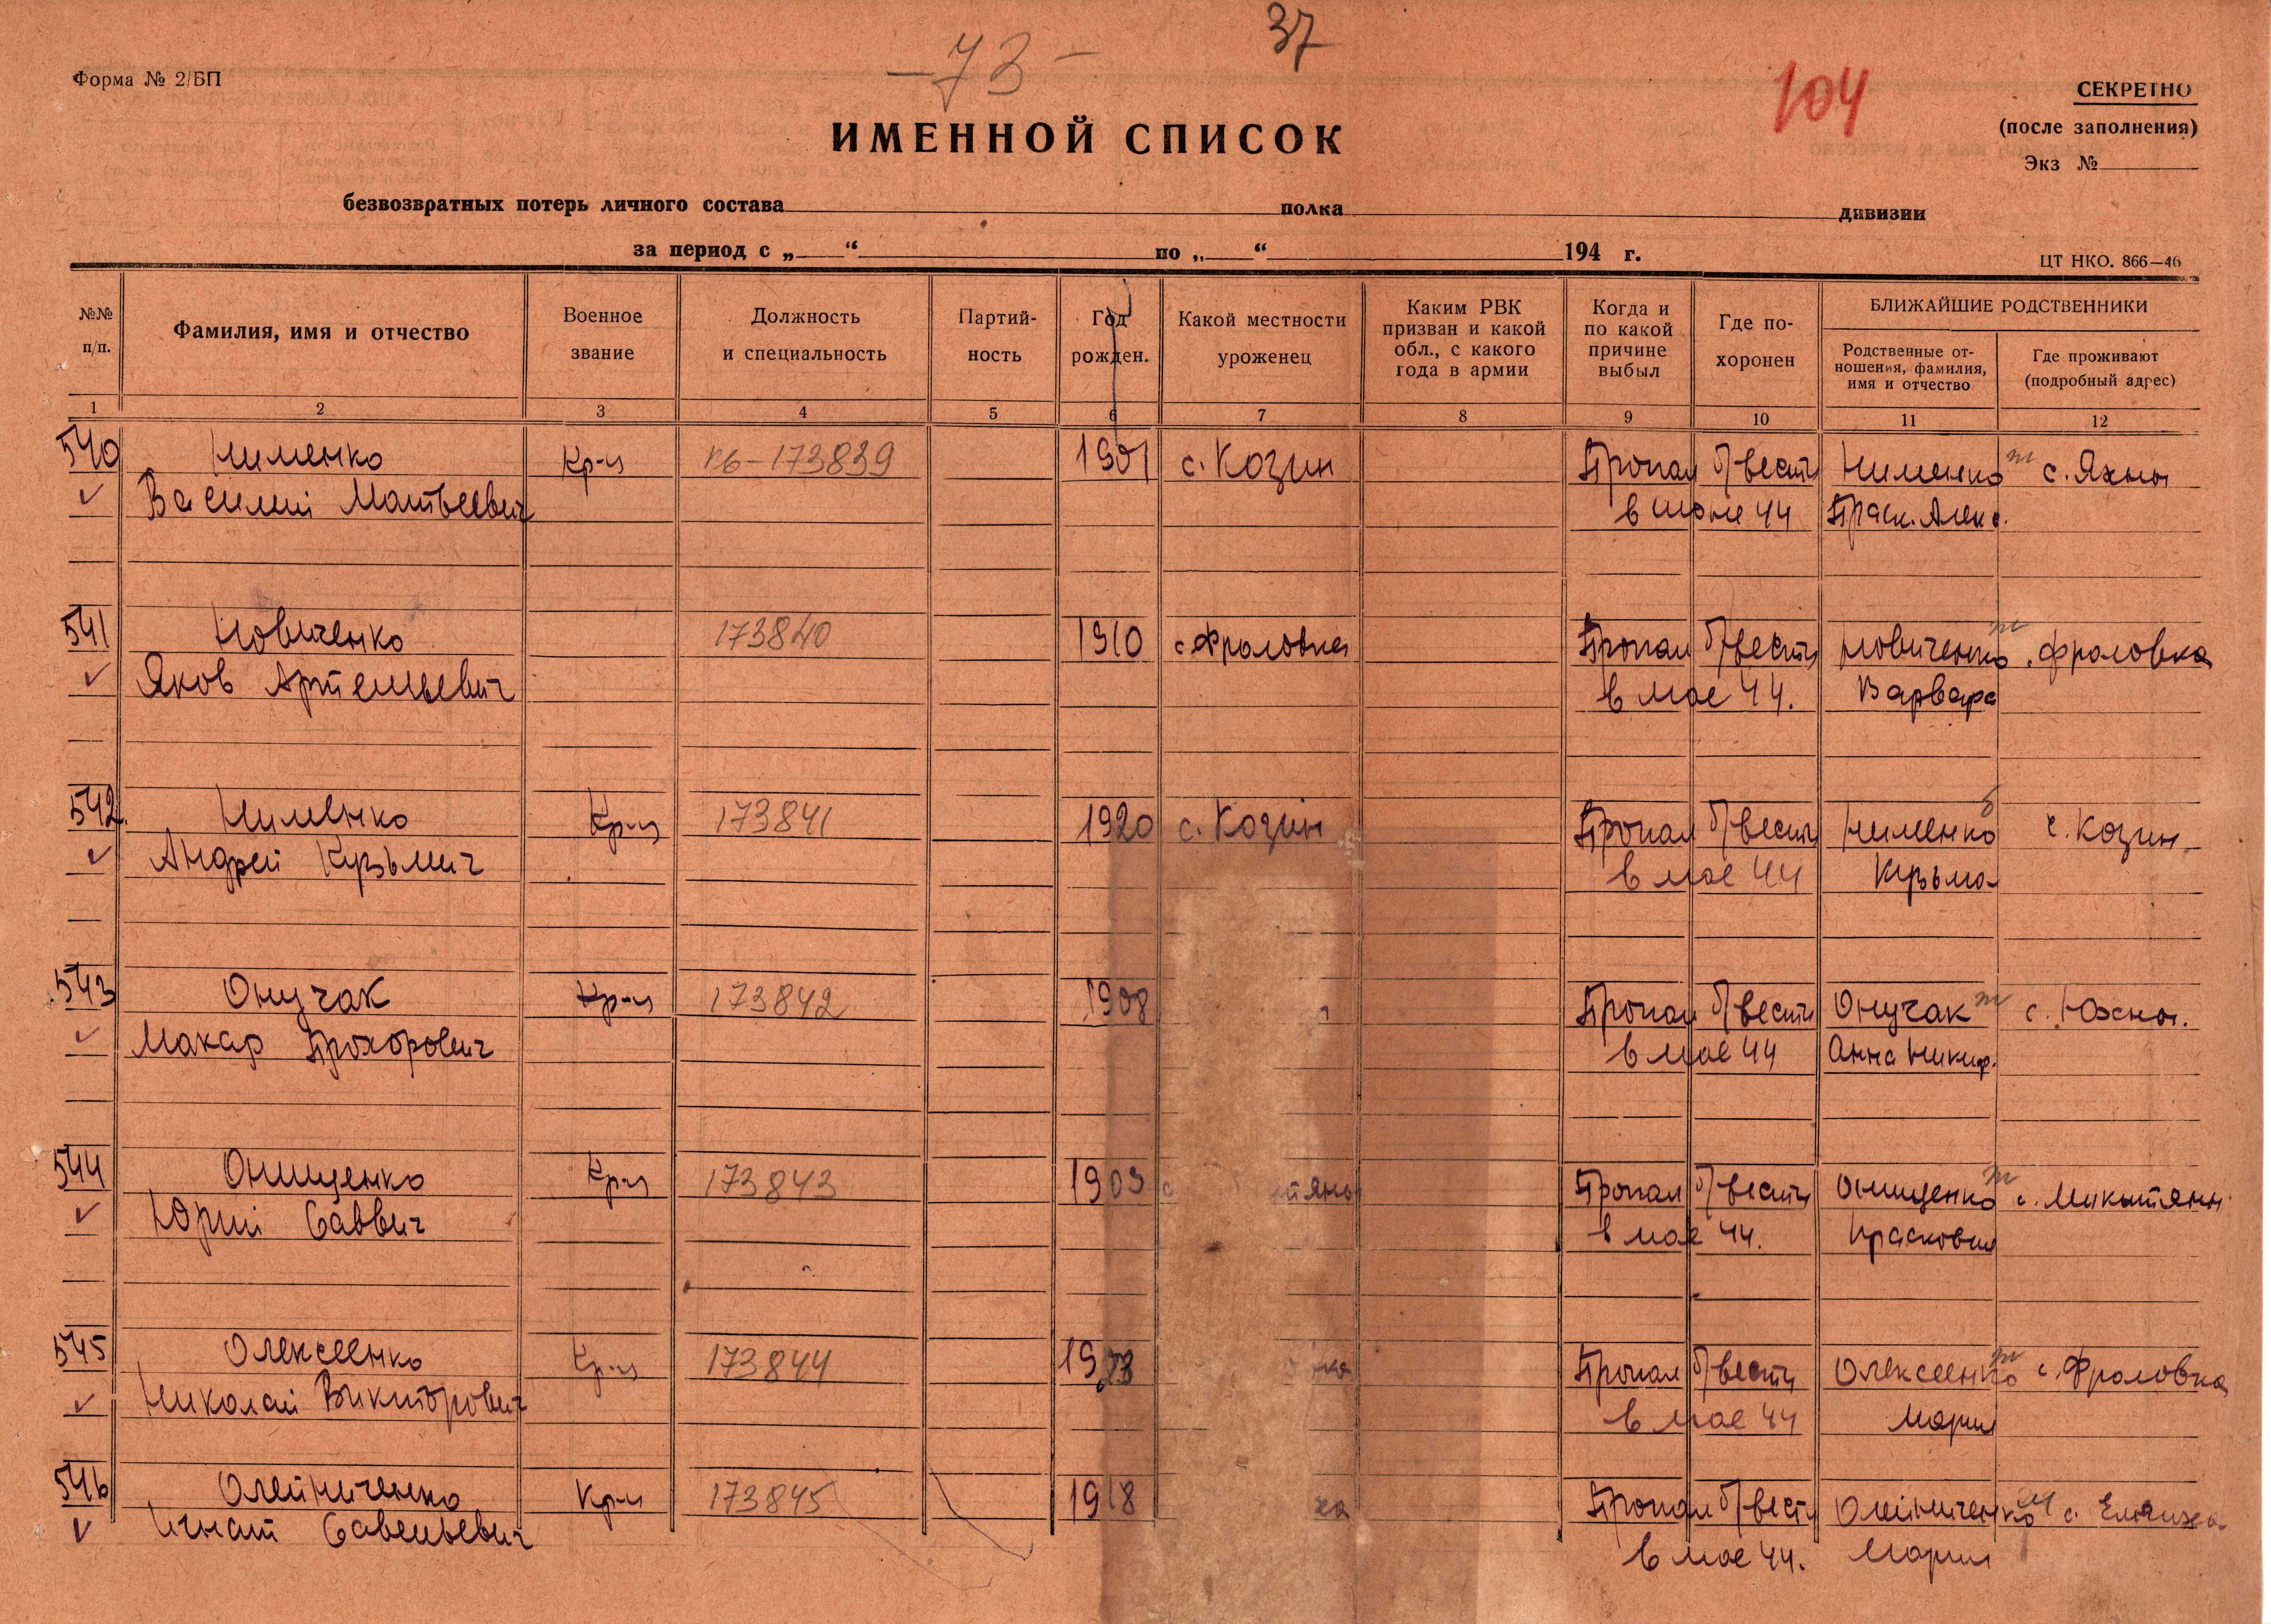 -73-
37
104
Форма № 2/БП
СЕКРЕТНО
(после заполнения)
Экз №
ИМЕННОЙ СПИСОК
безвозвратных потерь личного состава полка дивизии
за период с „ “ по „ “ 194 г.
ЦТ НКО. 866—46
№№ п/п.
Фамилия, имя и отчество
Военное звание
Должность и специальность
Партий-ность
Год рожден.
Какой местности уроженец
Каким РВК призван и какой обл., с какого года в армии
Когда и по какой причине выбыл
Где по-хоронен
БЛИЖАЙШИЕ РОДСТВЕННИКИ
Родственные от-ношения, фамилия, имя и отчество
Где проживают (подробный адрес)
1 2 3 4 5 6 7 8 9 10 11 12
540 Нименко Кр-ц 173839 1901 с. Козин Пропал б/вести Нименко с. Яхны
Василий Матвеевич в июне 44 Праск. Алекс.
541 Новиченко 173840 1910 с Фроловка Пропал б/вести Новиченко Фроловка
Яков Артемьевич в мае 44. Варвара
542. Нименко Кр-ц 173841 1920 с. Козин Пропал б/вести Нименко с. Козин
Андрей Кузьмич в мае 44 Кузьма
543 Онучак Кр-ц 173842 1908 Пропал б/вести Онучак с. Юхны.
Макар Прохорович в мае 44 Анна Никиф.
544 Онищенко Кр-ц 173843 1903 с тяны Пропал б/вести Онищенко с. Микитяны
Юрий Саввич в мае 44. Прасковия
545 Олексеенко Кр-ц 173844 1923 Пропал б/вести Олексеенко с. Фроловка
Николай Викторович в мае 44 Мария
546 Олейниченко Кр-ц 173845 1918 ха Пропал б/вести Олейниченко с.
Игнат Савельевич в мае 44. Мария